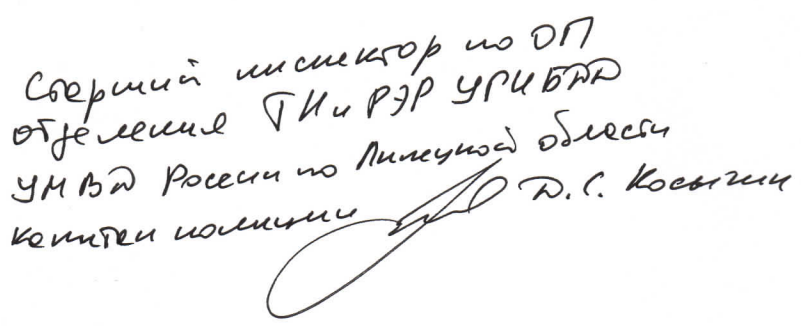 Старший инспектор по ОП
отделения ТН и РЭР УГИБДД
УМВД России по Липецкой области
капитан полиции Д.С. Косыгин